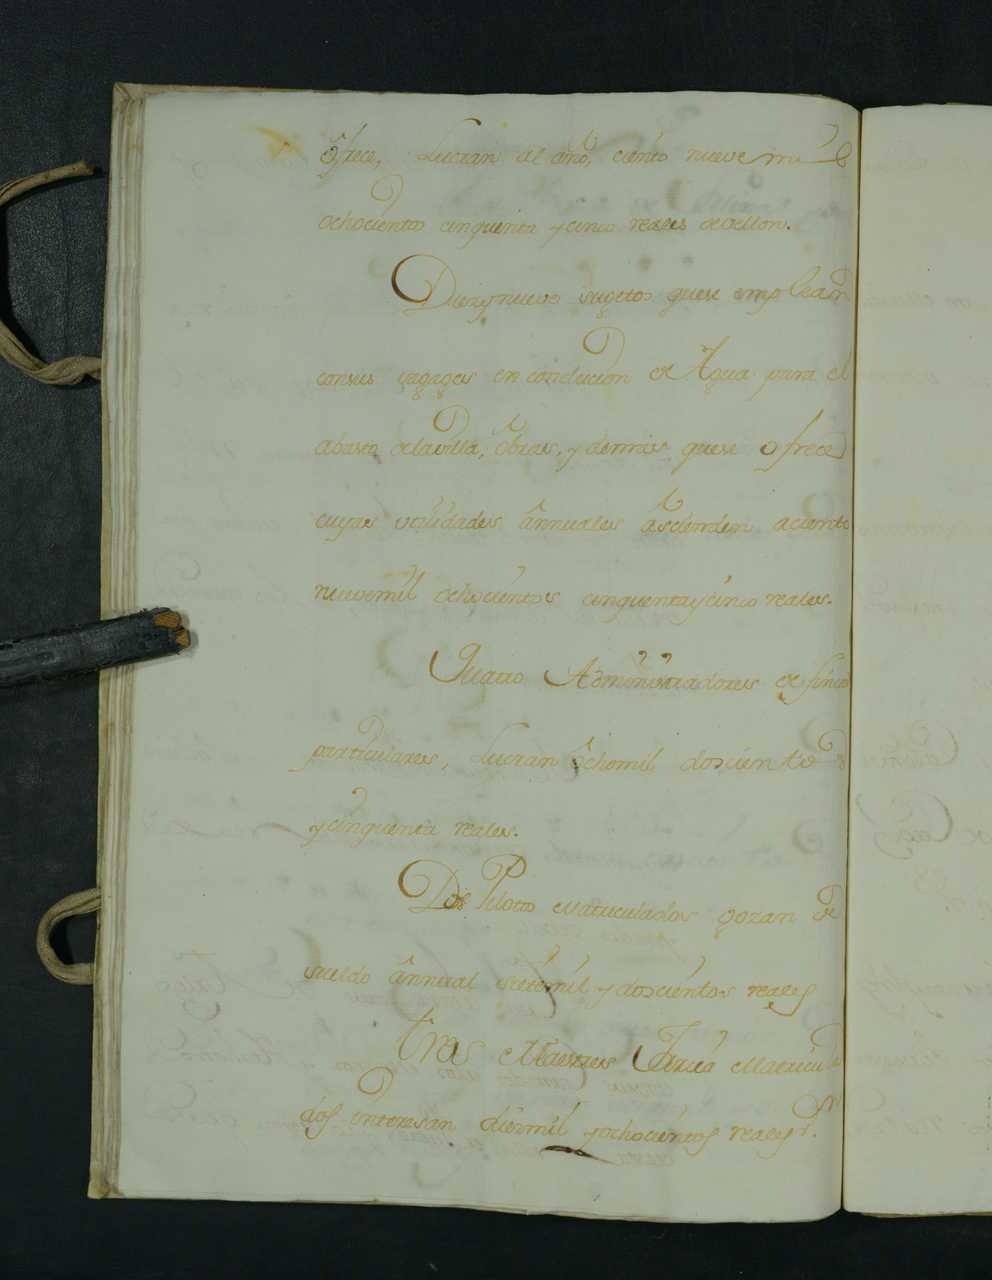 ofrece, Lucran al año, ciento nueve mil
ochocientos cinquenta y cinco reales de Vellon.
Diez y nueve sugetos quese emplean
consus vagages en conducion de Agua para el
abasto delavilla, obras, y demas, quese ofrece
cuyas utilidades annuales ascienden aciento
nuevemil ochocientos cinquentaycinco reales.
Quatro Administradores de fincas
particulares, Lucran ôchomil doscientos
y cinquenta reales.
Dos Pilotos Matriculados gozan de
sueldo ânnual sietemil y doscientos reales
tres Maestres Matricula
dos interesan diezmil yochocientos reales